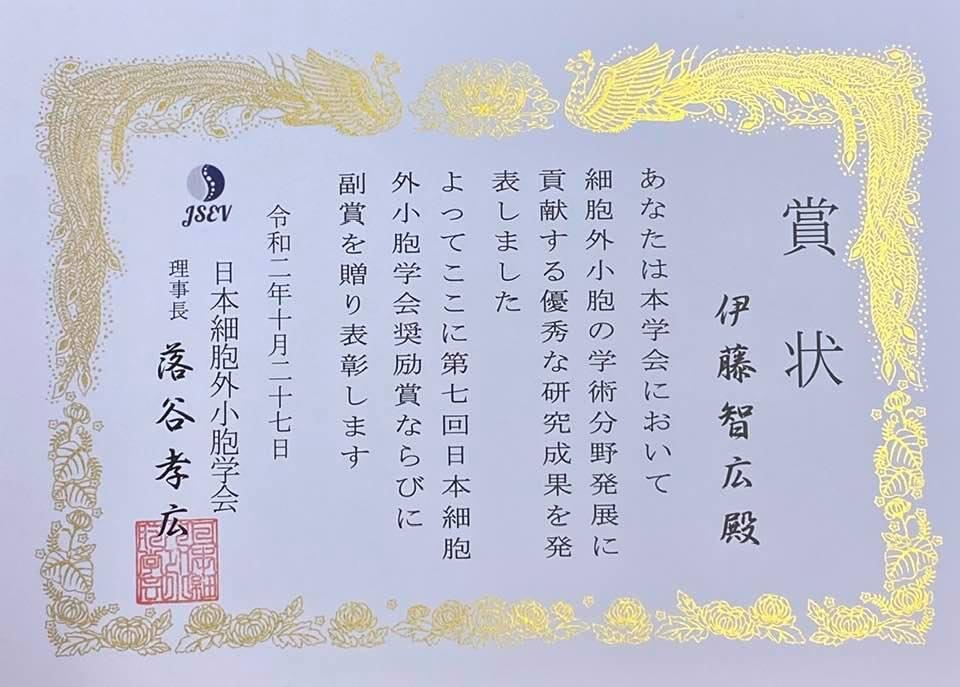 賞状
伊藤智広殿
あなたは本学会において
細胞外小胞の学術分野発展に
貢献する優秀な研究成果を発
表しました
よってここに第七回日本細胞
外小胞学会奨励賞ならびに
副賞を贈り表彰します
令和二年十月二十七日
JSEV
日本細胞外小胞学会
理事長 落谷孝広